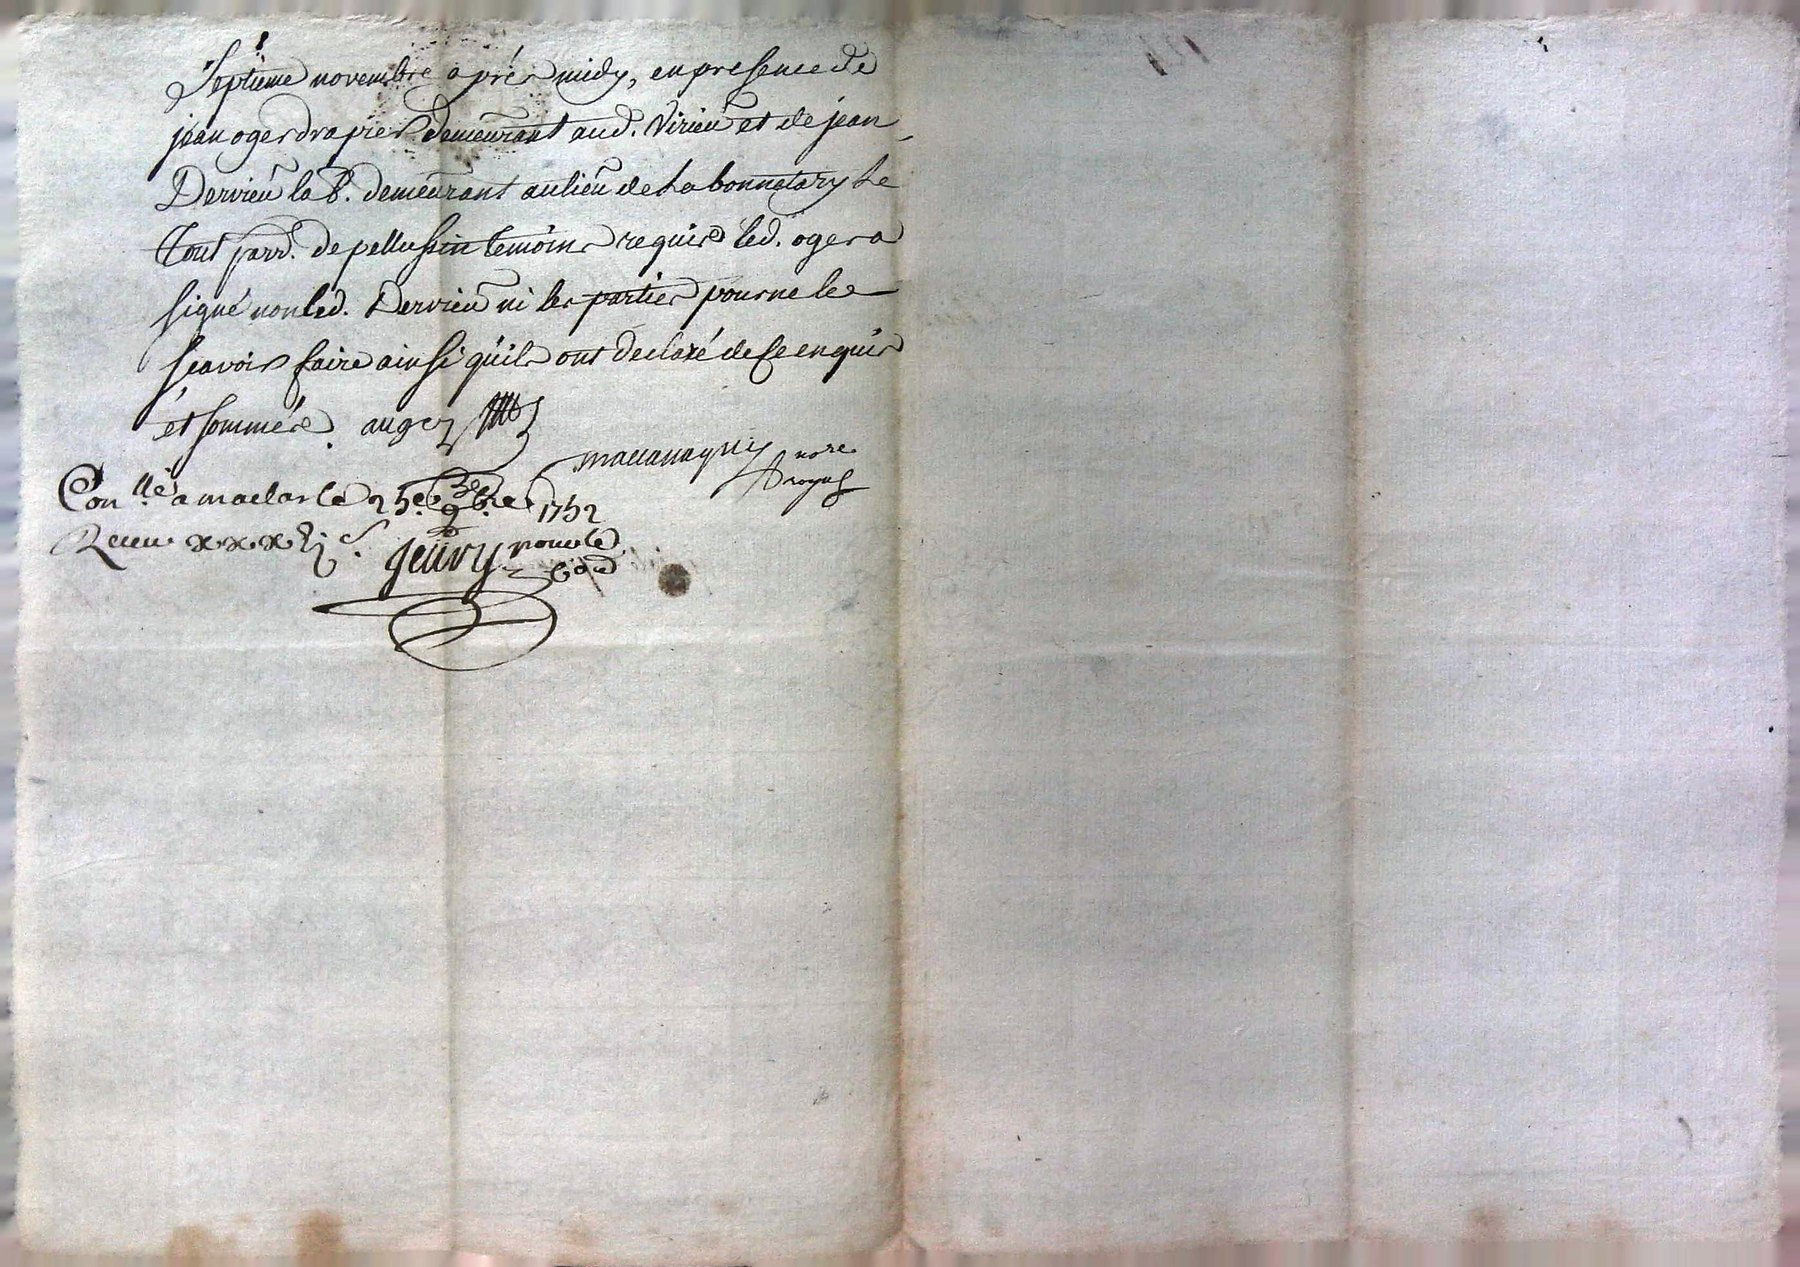 septieme novembre aprés midy, en presence de
jean oger drapier demeurant aud. Virieu et de jean
Dervieu lab. demeurant au lieu de La bonnetary Le
tout parr. de pellussin temoins requis led. oger a
signé non led. Dervieu ni les parties pour ne le
sçavoir faire ainsi quils ont declaré de ce enquis
et sommés. auger
Conllé a maclas le 25e 9bre 1752
nore
royal
Receu xxx